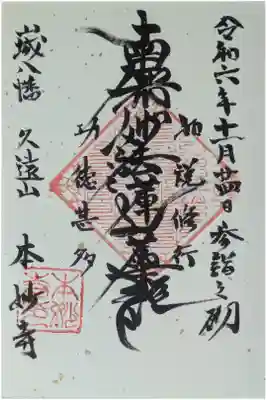 令和六年十一月廿四日参詣之砌
如説修行
南無妙法蓮華経
功徳甚多
城八幡 久遠山 本妙寺